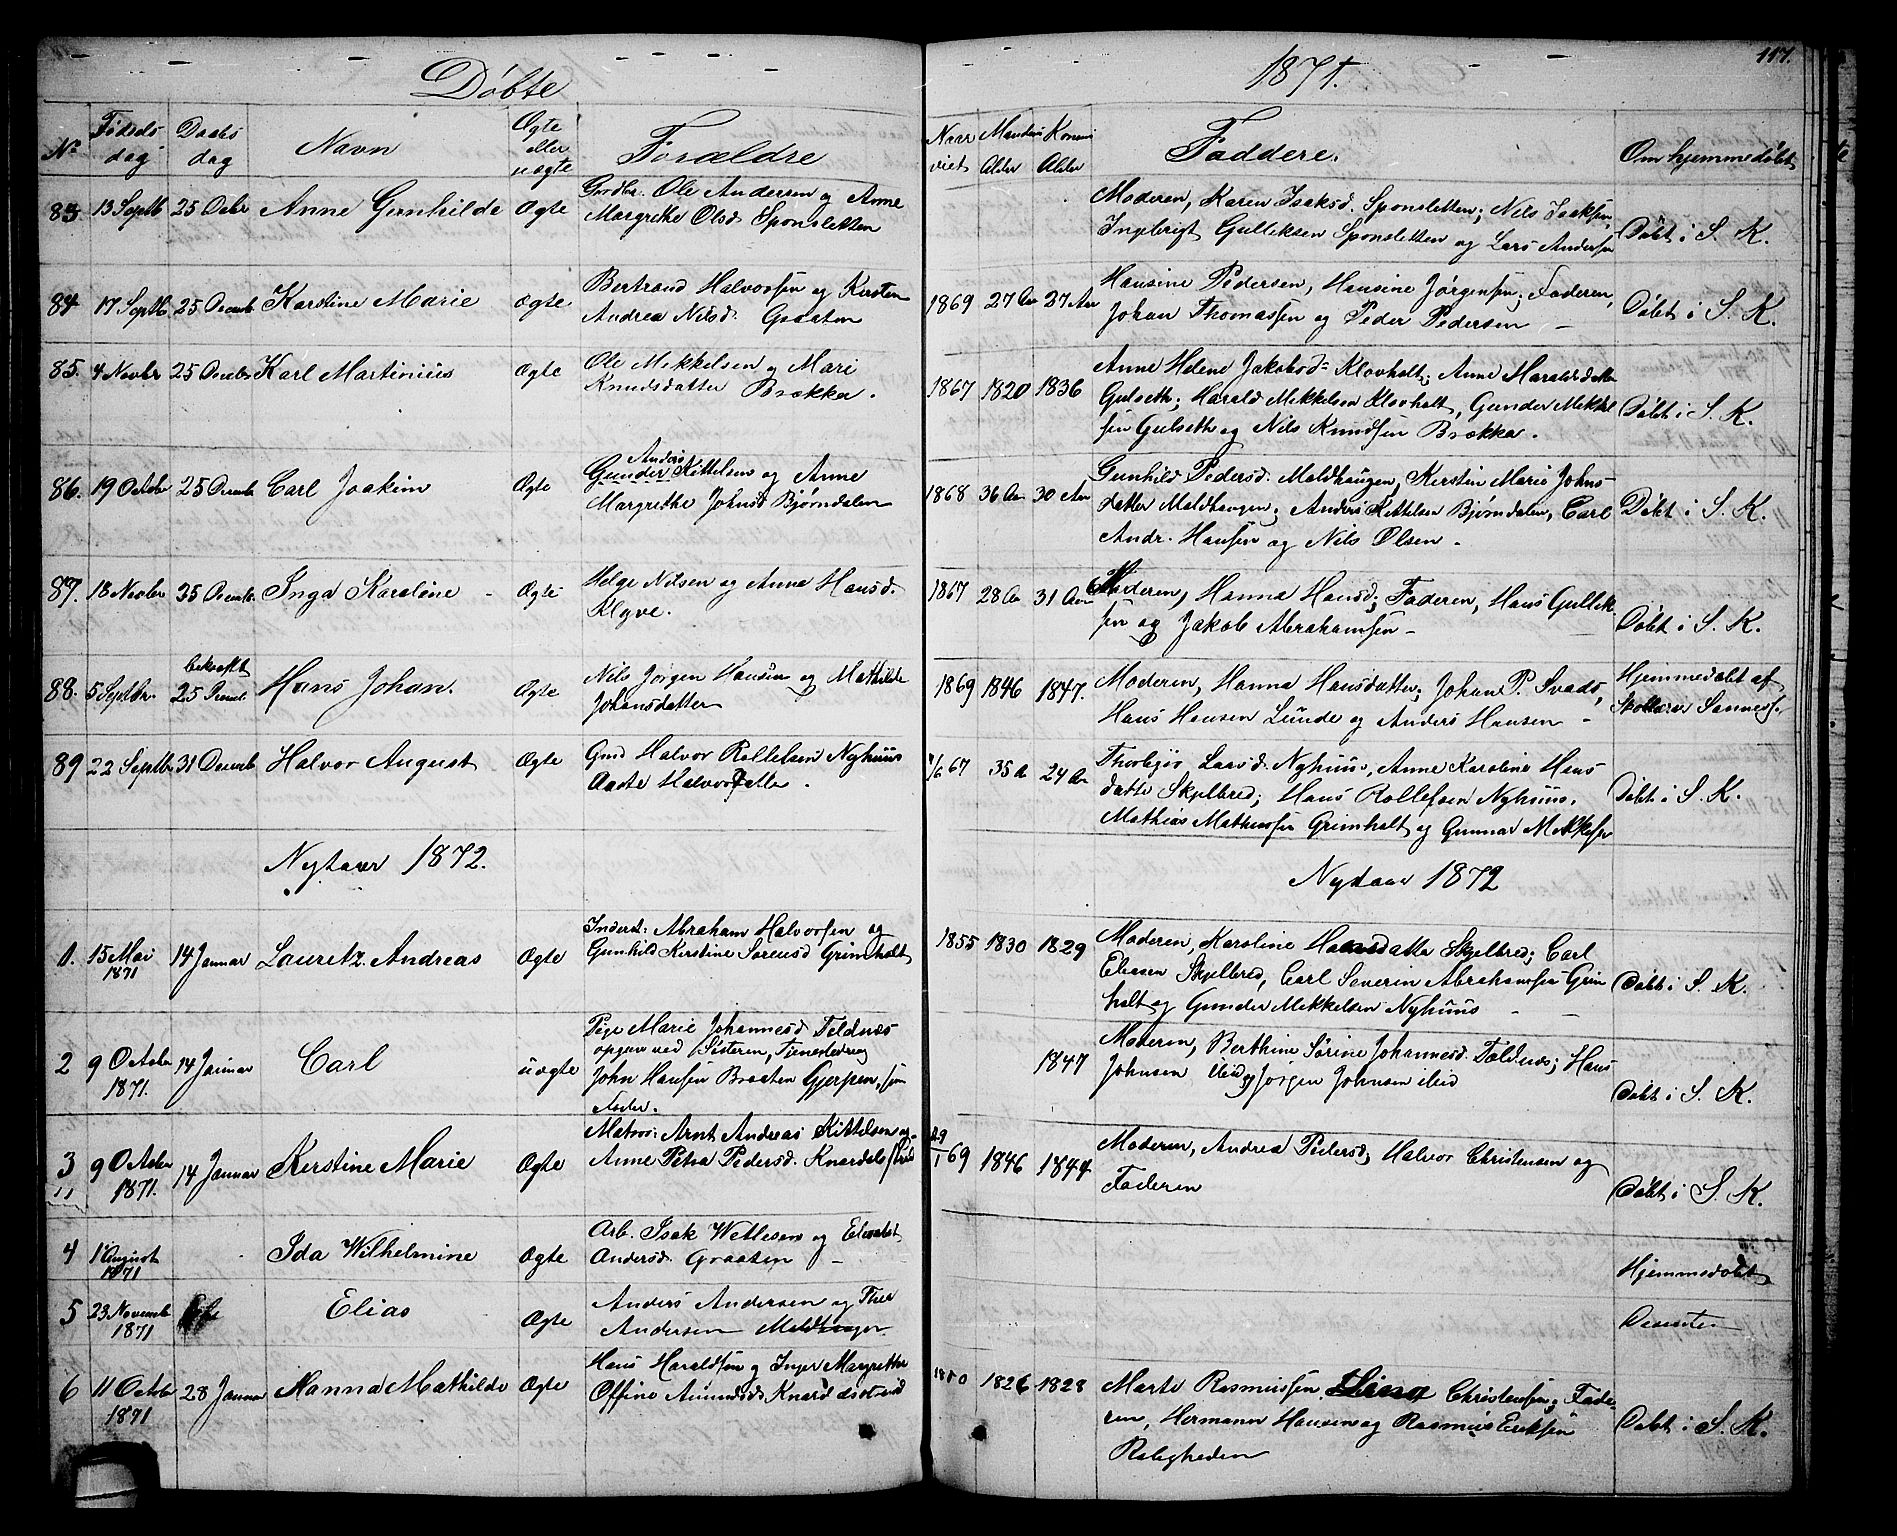 117.
Döbte 1871.
No Födsels dag Daabs dag Navn Ægte eller uægte Forældre Naar viet Mandens Alder Konens Alder Faddere. Om hjemmedöbt
83. 13 Septb 25 Decbr Anne Gunhilde Ægte Grdbr. Ole Andersen og Anne
Margrethe Olsd Sponsletten
Moderen, Karen Isaksd. Sponsletten; Nils Isaksen,
Ingebrigt Gulleksen Sponsletten og Lars Andersen
Döbt i S. K.
84. 17 Septb 25 Decemb Karstine Marie ægte Bertrand Halvorsen og Kirsten
Andrea Nilsd. Graaten
1869 27 Aar 27 Aar
Hansine Pedersen, Hansine Jörgensen; Faderen,
Johan Thomassen og Peder Pedersen –
Döbt i S. K.
85. 4 Novbr 25 Decebr Karl Martinius Ægte Ole Mekkelsen og Mari
Knudsdatter Brække.
1867 1820 1836
Anne Helene Jakobsd= Klovholt; Anne Haraldsdatter
Gulseth; Harald Mikkelsen Klovholt, Gunder Mekkel
sen Gulseth og Nils Knudsen Brække.
Döbt i S. K.
86. 19 Octobr 25 Decemb Carl Joakim Ægte
Anders
Gunder Kittelsen og Anne
Margrethe Johnsd Bjørndalen
1868 36 Aar 30 Aar
Gunhild Pedersd. Moldhaugen, Kerstin Marie Johns-
datter Moldhaugen; Anders Kittelsen Bjørndalen, Carl
Andr. Hansen og Nils Olsen –
Döbt i S. K.
87. 18 Novbr 25 Decemb. Inga Karoline – Ægte Helge Nilsen og Anne Hansd.
Klyve.
1867 28 Aar 31 Aar
Moderen, Hanna Hansd; Faderen, Hans Gullik
sen og Jakob Abrahamsen –
Döbt i S. K.
88. 5 Septbr. bekræft 25 Decemb Hans Johan. Ægte Nils Jörgen Hansen og Mathilde
Johansdatter
1869 1846 1847.
Moderen, Hanna Hansdatter; Johan P. Svads,
Hans Hansen Lunde og Anders Hansen –
Hjemmedöbt af
Skolelærer
89 22 Septb 31 Decemb Halvor August Ægte Gmd Halvor Rollefsen Nyhuus
Aaste Halvorsdatter.
/6 67 35 A 24 Aar
Thorbjør Laavd. Nyhuus, Anne Karoline Hans
datter Skjelbred; Hans Rollefsen Nyhuus.
Mathias Mathiassen Grimholt og Gunnar Mekkelsen
Döbt i S. K.
Nytaar 1872. Nytaar 1872
1. 15 Mai 1871 14 Januar Lauretz Andreas Ægte Inderst: Abraham Halvorsen og
Gunhild Kerstine Sørensd Grimholt
1855 1830 1829
Moderen, Karoline Hansdatter Skjelbred; Carl
Eliasen Skjelbred, Carl Severin Abrahamsen Grim
holt og Gunder Mekkelsen Nyhuus –
Döbt i S. K.
2 9 Octobr 1871. 14 Januar Carl uægte Pige Marie Johannesd. Foldnæs
opgav ved Søsteren, Tjenestedreng
John Hansen Braaten Gjerpen, som
Fader.
1847
Moderen, Berthine Sörine Johannesd. Foldnæs; Hans
Johnsen ibid og Jorgen Johnsen ibid
Döbt i S. K.
3 9 Octobr 1871. 14 Januar Kerstine Marie Ægte Matros: Arnt Andreas Kittelsen og
Anne Petra Pedersd. Knardalsstrand
29/1 69 1846 1844
Moderen, Andrea Pedersd; Halvor Christensen og
Faderen
Döbt i S. K.
4 1 August 1871 Ida Wilhelmine Ægte Arb. Isak Wetlesen og Elisabet
Andersd. Graaten –
Hjemmedöbt
5 23 Novemb 1871 Elias Ægte Anders Andersen og
Andersen Moldhaugen
6 11 Octobr 1871 28 Januar Hanna Mathilde Ægte Hans Haraldsen og Inger Margrethe
Offine Amundsd. Knardalsstrand
1850 1826 1828
Marte Rasmussen Lina Christensen; Fade-
ren, Hermann Hansen og Rasmus Eriksen
Roligheden
Döbt i S. K.